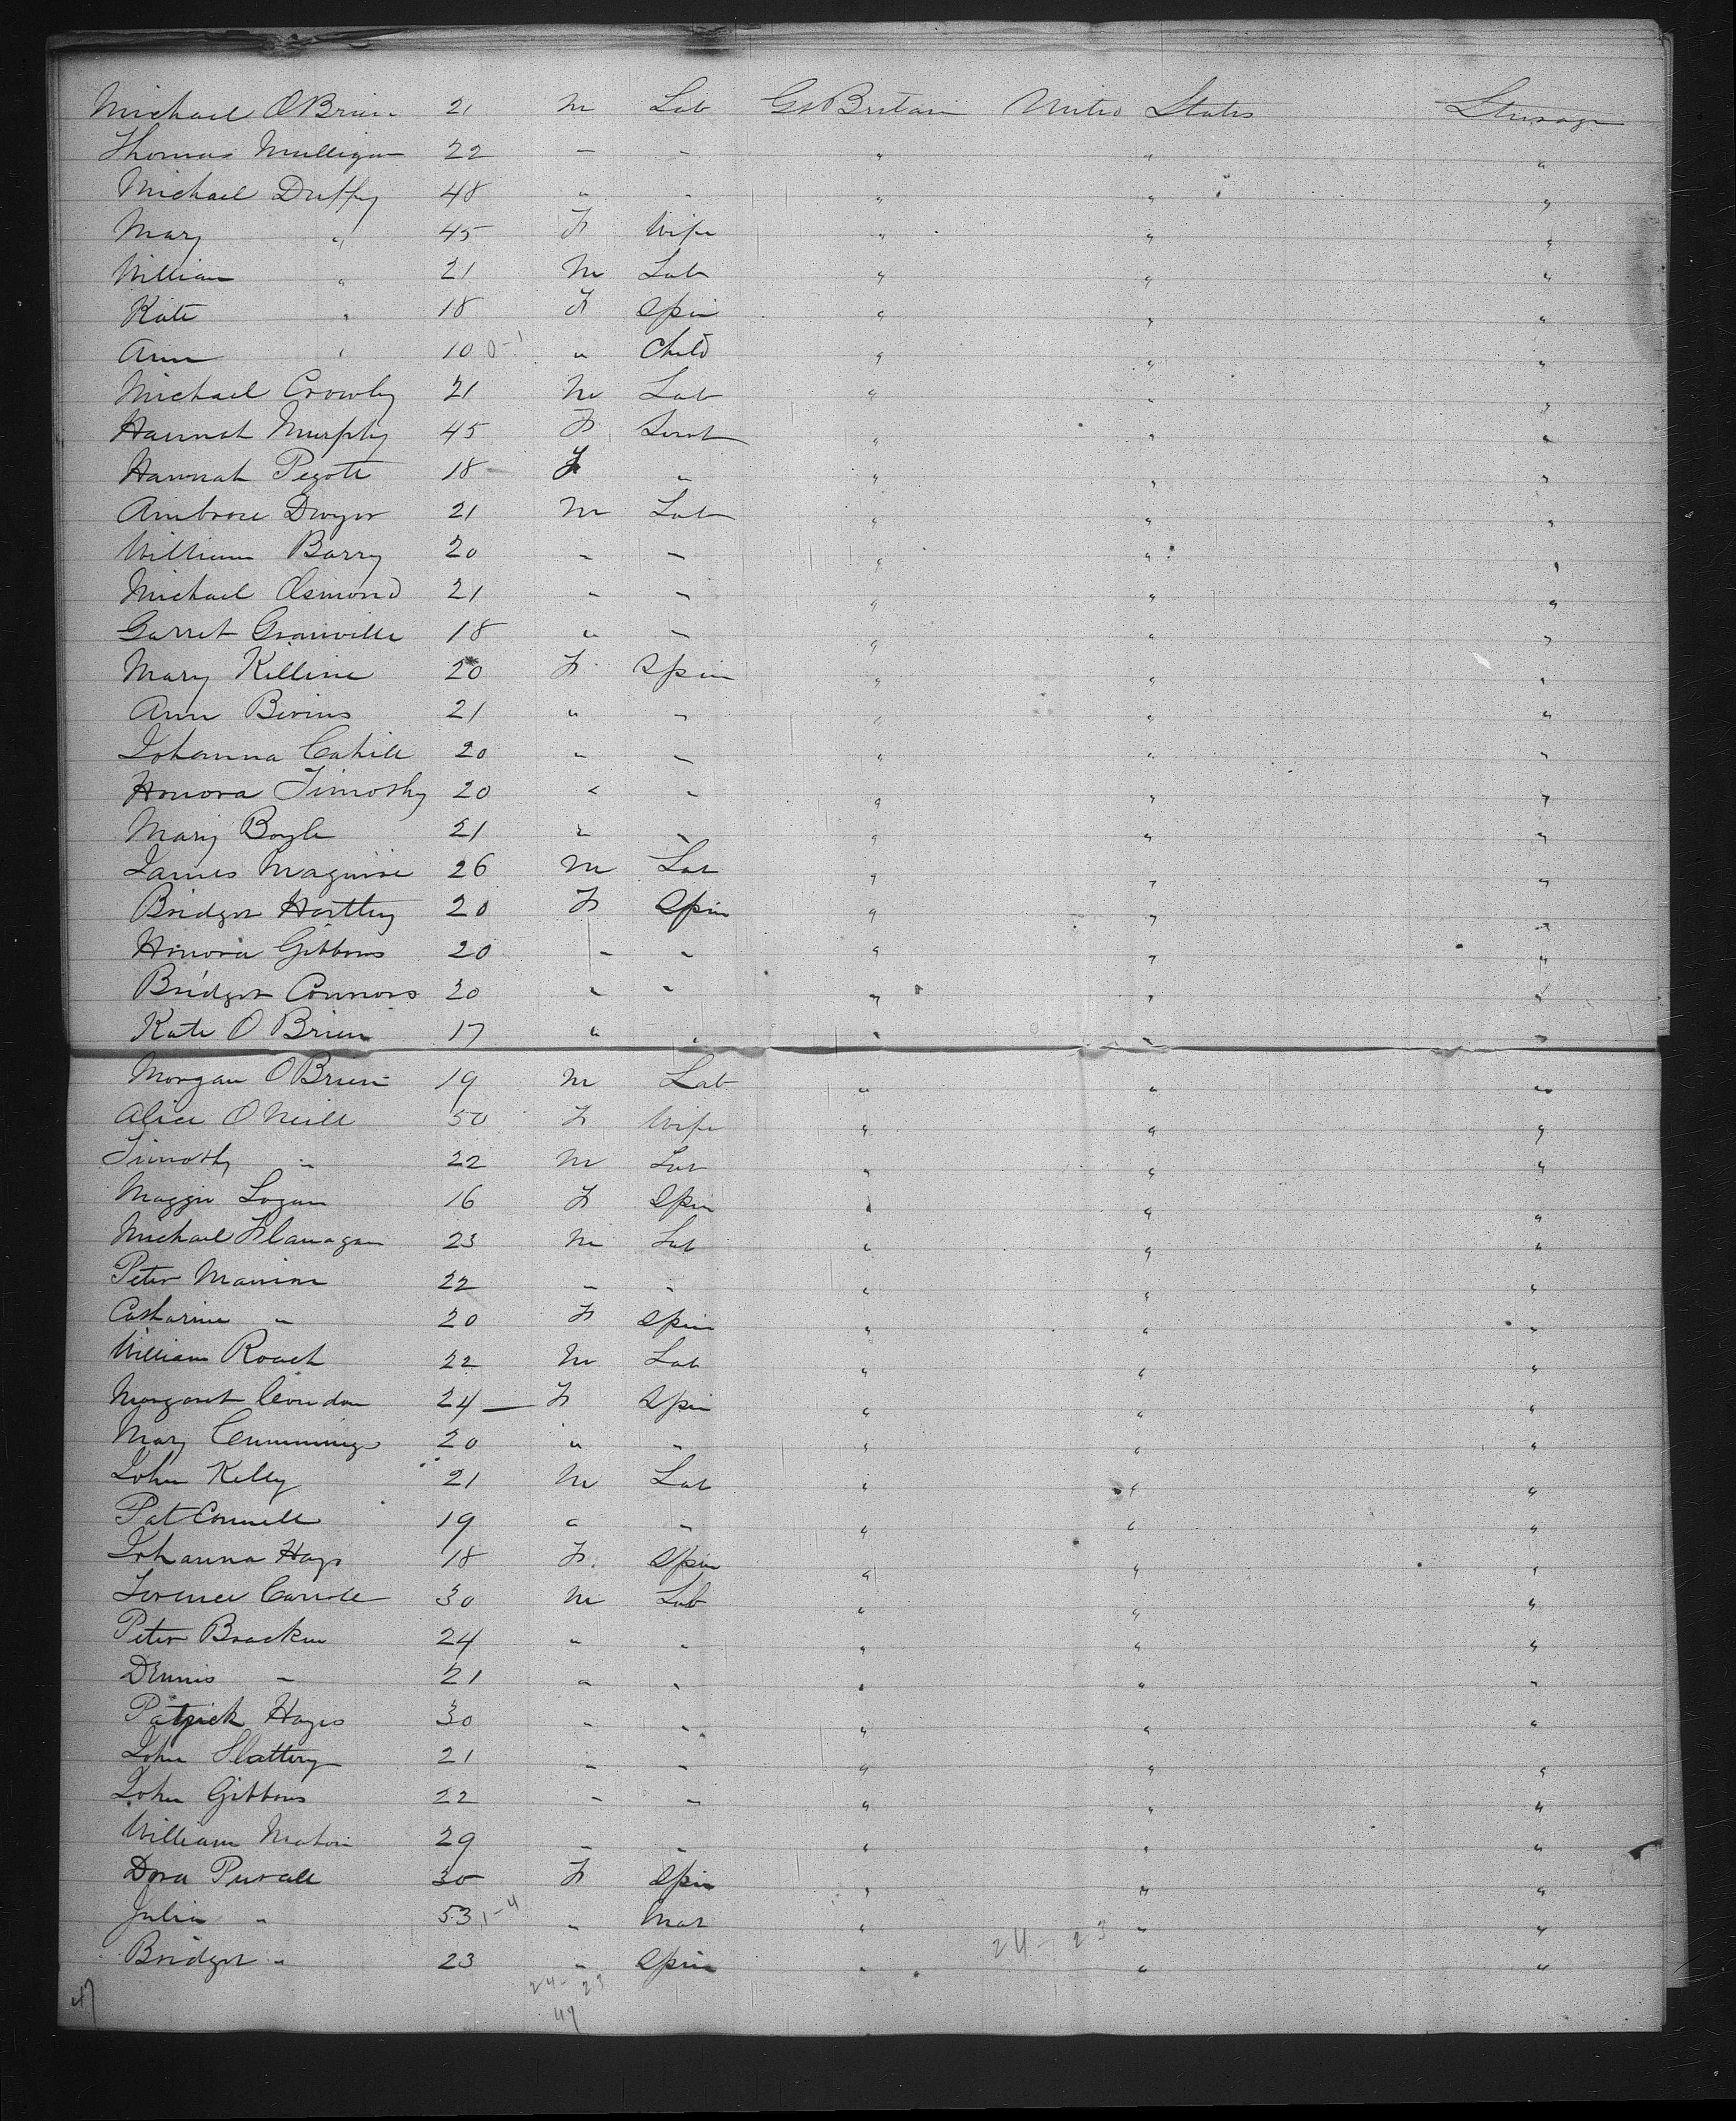 Michael OBrien 21 M Lab Gt Britain United States Steerage
Thomas Mulligan 22 " " " " "
Michael Duffy 48 " " " " "
Mary " 45 F Wife " " "
William " 21 M Lab " " "
Kate " 18 F Spin " " "
Ann " 10 " Child " " "
Michael Crowley 21 M Lab " " "
Hannah Murphy 45 F Servt " " "
Hannah 18 F " " " "
Ambrose Dwyer 21 M Lab " " "
William Barry 20 " " " " "
Michael Osmond 21 " " " " "
Garret Granville 18 " " " " "
Mary Killine 20 F Spin " " "
Ann Bivins 21 " " " " "
Johanna Cahill 20 " " " " "
Honora Timothy 20 " " " " "
Mary Boyle 21 " " " " "
James Maguire 26 M Lab " " "
Bridget Hartley 20 F Spin " " "
Honora Gibbons 20 " " " " "
Bridget Connors 20 " " " " "
Kate O Brien 17 " " " " "
Morgan OBrien 19 M Lab " " "
Alice O Neill 50 F Wife " " "
Timothy " 22 M Lab " " "
Maggie Logan 16 F Spin " " "
Michael Flanagan 23 M Lab " " "
Peter Mannion 22 " " " " "
Catharine " 20 F Spin " " "
William Roach 22 M Lab " " "
Margaret Condon 24 F Spin " " "
Mary Cummings 20 " " " " "
John Kelly 21 M Lab " " "
Pat Connell 19 " " " " "
Johanna Hays 18 F Spin " " "
Terence Carroll 30 M Lab " " "
Peter Bracken 24 " " " " "
Dennis " 21 " " " " "
Patrick Hayes 30 " " " " "
John Slattery 21 " " " " "
John Gibbons 22 " " " " "
William Mahon 29 " " " " "
Dora Purcell 30 F Spin " " "
Julia " 53 " Mar " " "
Bridget " 23 " Spin " " "
24-23
24-23
47
49